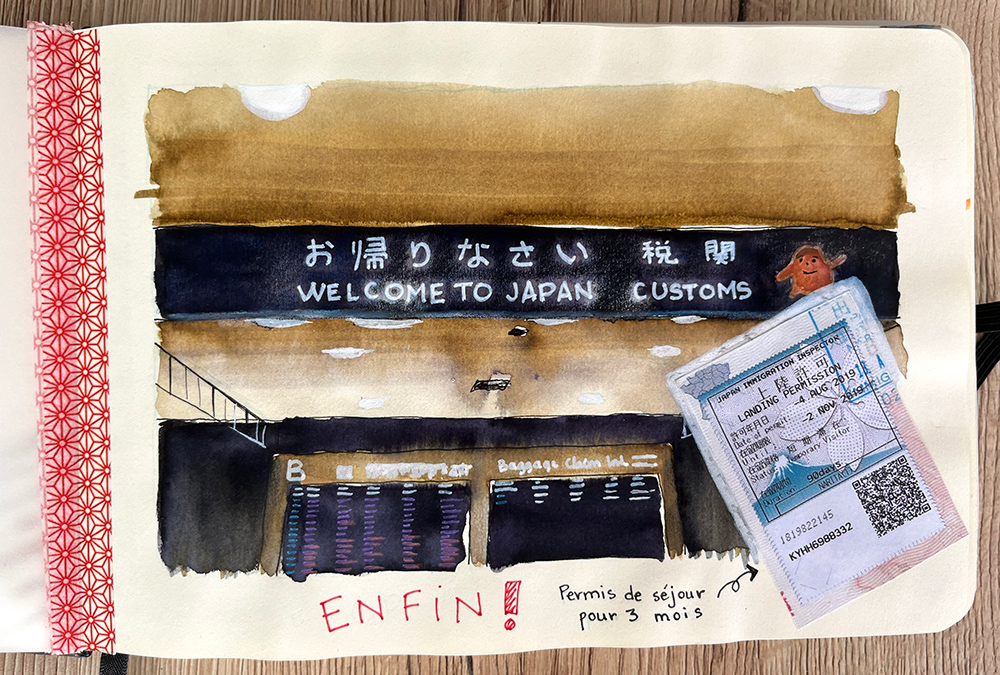 お帰りなさい 税関
WELCOME TO JAPAN CUSTOMS
B
Baggage Claim Inf.
JAPAN IMMIGRATION INSPECTOR
上陸許可
LANDING PERMISSION
許可年月日 -4. AUG 2019
Date of permit:
在留期限 -2. NOV. 2019
Until:
在留資格 短期滞在
Status: Temporary Visitor
在留期間 90days
Duration: NARITA
1819822145
KYHH6988332
ENFIN!
Permis de séjour
pour 3 mois